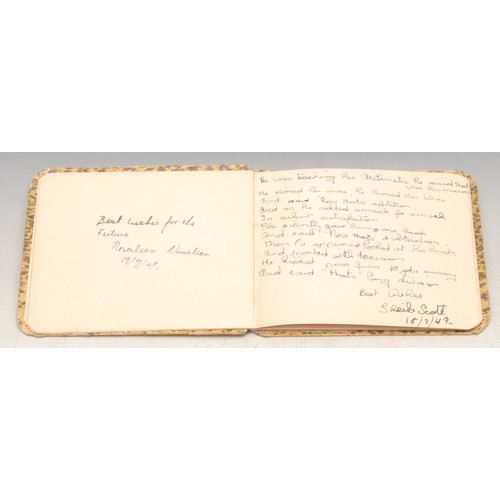 Best wishes for the
Future
19/7/49.
He was teaching her arithmetic he said that
was his mission
He kissed her once, he kissed her twice
And said "Now that's addition
And as he added smack for smack
In silent satisfaction
She silently gave him one back
And said "Now that's subtraction".
Then Pa appeared looked at the
And snorted with decision
He kicked from 10 yds away
And said "That's long division
Best Wishes
Sheila Scott
18/7/49.